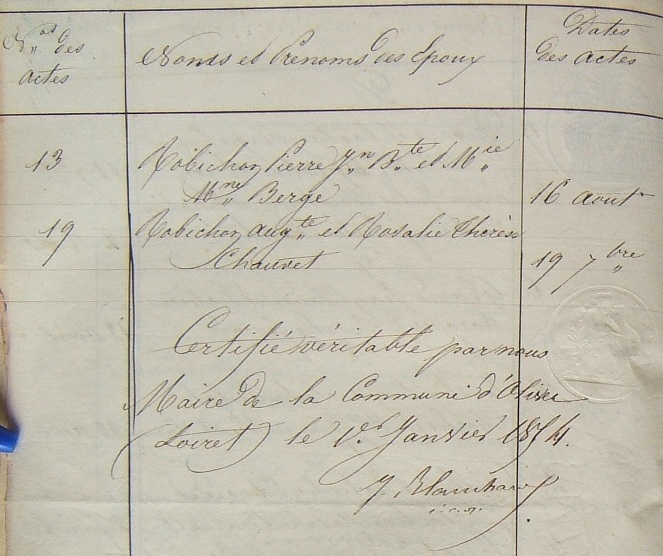 Nos des
actes
Noms et Prenoms des Epoux
Dates
des actes
13
Robichon Pierre Jn Bte et Mie
Mne Berge
16 aout
19
Robichon Augte et Rosalie Therèse
Chauvet
19 7bre
Certifié véritable par nous
Maire de la Commune d'Olivet
(Loiret) le 1er Janvier 1874.